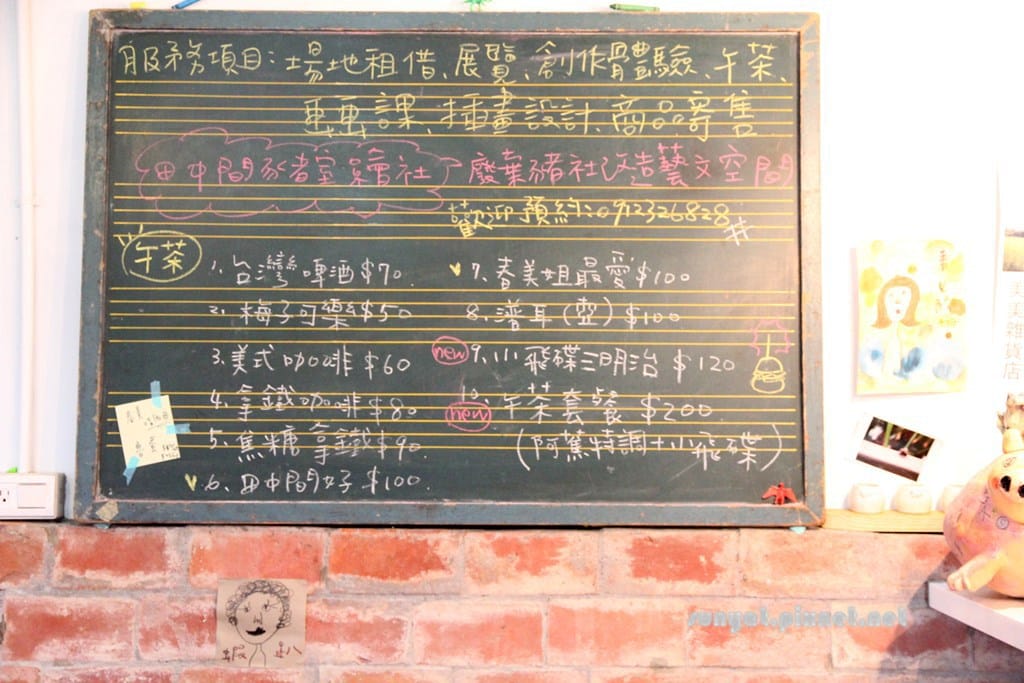 服務項目:場地租借、展覽、創作體驗、午茶、
畫畫課、插畫設計、商品寄售
田中間豖者室繪社 廢棄豬社改造藝文空間
歡迎預約:0912326828
午茶
1. 台灣啤酒$70
2. 梅子可樂$50
3. 美式咖啡$60
4. 拿鐵咖啡$80
5. 焦糖拿鐵$90
6、田中間好$100
7. 春美姐最愛$100
8、普耳(壺)$100
new 9、小飛碟三明治 $120
10、new 午茶套餐 $200
(阿篤特調+小飛碟)
美美雜貨店
sunyat.pixnet.net